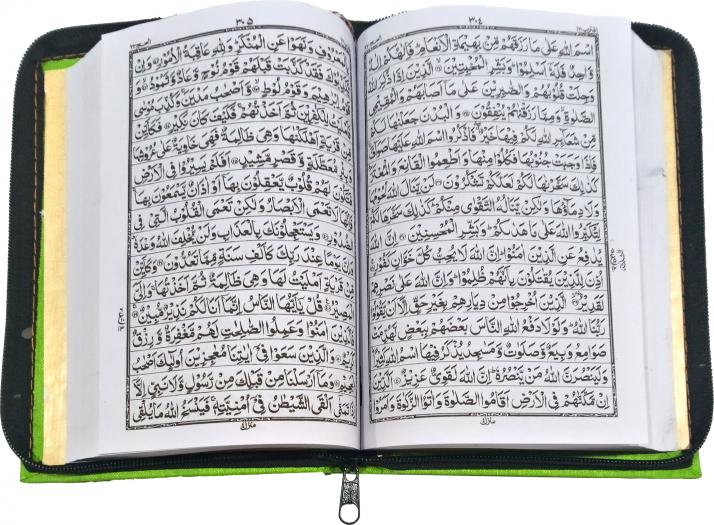 ٣٠٤
اسْمَ اللّٰهِ عَلٰى مَا رَزَقَهُمْ مِّنْۢ بَهِيْمَةِ الْاَنْعَامِ ؕ فَاِلٰهُكُمْ اِلٰهٌ
وَّاحِدٌ فَلَهٗۤ اَسْلِمُوْا ؕ وَبَشِّرِ الْمُخْبِتِيْنَ ۙ الَّذِيْنَ اِذَا ذُكِرَ اللّٰهُ
وَجِلَتْ قُلُوْبُهُمْ وَالصّٰبِرِيْنَ عَلٰى مَاۤ اَصَابَهُمْ وَالْمُقِيْمِى
الصَّلٰوةِ ۙ وَمِمَّا رَزَقْنٰهُمْ يُنْفِقُوْنَ وَالْبُدْنَ جَعَلْنٰهَا لَكُمْ
مِّنْ شَعَآئِرِ اللّٰهِ لَكُمْ فِيْهَا خَيْرٌ ۖ فَاذْكُرُوا اسْمَ اللّٰهِ عَلَيْهَا صَوَآفَّ ۚ
فَاِذَا وَجَبَتْ جُنُوْبُهَا فَكُلُوْا مِنْهَا وَاَطْعِمُوا الْقَانِعَ وَالْمُعْتَرَّ ؕ
كَذٰلِكَ سَخَّرْنٰهَا لَكُمْ لَعَلَّكُمْ تَشْكُرُوْنَ لَنْ يَّنَالَ اللّٰهَ لُحُوْمُهَا
وَلَا دِمَآؤُهَا وَلٰكِنْ يَّنَالُهُ التَّقْوٰى مِنْكُمْ ؕ كَذٰلِكَ سَخَّرَهَا لَكُمْ
لِتُكَبِّرُوا اللّٰهَ عَلٰى مَا هَدٰىكُمْ ؕ وَبَشِّرِ الْمُحْسِنِيْنَ اِنَّ اللّٰهَ
يُدٰفِعُ عَنِ الَّذِيْنَ اٰمَنُوْا ؕ اِنَّ اللّٰهَ لَا يُحِبُّ كُلَّ خَوَّانٍ كَفُوْرٍ
اُذِنَ لِلَّذِيْنَ يُقٰتَلُوْنَ بِاَنَّهُمْ ظُلِمُوْا ؕ وَاِنَّ اللّٰهَ عَلٰى نَصْرِهِمْ
لَقَدِيْرُ الَّذِيْنَ اُخْرِجُوْا مِنْ دِيَارِهِمْ بِغَيْرِ حَقٍّ اِلَّاۤ اَنْ يَّقُوْلُوْا
رَبُّنَا اللّٰهُ ؕ وَلَوْلَا دَفْعُ اللّٰهِ النَّاسَ بَعْضَهُمْ بِبَعْضٍ لَّهُدِّمَتْ
صَوَامِعُ وَبِيَعٌ وَّصَلَوٰتٌ وَّمَسٰجِدُ يُذْكَرُ فِيْهَا اسْمُ اللّٰهِ كَثِيْرًا ؕ
وَلَيَنْصُرَنَّ اللّٰهُ مَنْ يَّنْصُرُهٗ ؕ اِنَّ اللّٰهَ لَقَوِىٌّ عَزِيْزٌ اَلَّذِيْنَ
اِنْ مَّكَّنّٰهُمْ فِى الْاَرْضِ اَقَامُوا الصَّلٰوةَ وَاٰتَوُا الزَّكٰوةَ وَاَمَرُوْا
منزل
٣٠٥
بِالْمَعْرُوْفِ وَنَهَوْا عَنِ الْمُنْكَرِ ؕ وَلِلّٰهِ عَاقِبَةُ الْاُمُوْرِ وَاِنْ
يُّكَذِّبُوْكَ فَقَدْ كَذَّبَتْ قَبْلَهُمْ قَوْمُ نُوْحٍ وَّعَادٌ وَّثَمُوْدُ
وَقَوْمُ اِبْرٰهِيْمَ وَقَوْمُ لُوْطٍ وَّاَصْحٰبُ مَدْيَنَ ۚ وَكُذِّبَ مُوْسٰى
فَاَمْلَيْتُ لِلْكٰفِرِيْنَ ثُمَّ اَخَذْتُهُمْ ۚ فَكَيْفَ كَانَ نَكِيْرِ فَكَاَيِّنْ
مِّنْ قَرْيَةٍ اَهْلَكْنٰهَا وَهِىَ ظَالِمَةٌ فَهِىَ خَاوِيَةٌ عَلٰى عُرُوْشِهَا
وَبِئْرٍ مُّعَطَّلَةٍ وَّقَصْرٍ مَّشِيْدٍ اَفَلَمْ يَسِيْرُوْا فِى الْاَرْضِ
فَتَكُوْنَ لَهُمْ قُلُوْبٌ يَّعْقِلُوْنَ بِهَاۤ اَوْ اٰذَانٌ يَّسْمَعُوْنَ بِهَا ۚ
فَاِنَّهَا لَا تَعْمَى الْاَبْصَارُ وَلٰكِنْ تَعْمَى الْقُلُوْبُ الَّتِىْ فِى
الصُّدُوْرِ وَيَسْتَعْجِلُوْنَكَ بِالْعَذَابِ وَلَنْ يُّخْلِفَ اللّٰهُ وَعْدَهٗ ؕ
وَاِنَّ يَوْمًا عِنْدَ رَبِّكَ كَاَلْفِ سَنَةٍ مِّمَّا تَعُدُّوْنَ وَكَاَيِّنْ
مِّنْ قَرْيَةٍ اَمْلَيْتُ لَهَا وَهِىَ ظَالِمَةٌ ثُمَّ اَخَذْتُهَا ۚ وَاِلَىَّ
الْمَصِيْرُ قُلْ يٰۤاَيُّهَا النَّاسُ اِنَّمَاۤ اَنَا لَكُمْ نَذِيْرٌ مُّبِيْنٌ
فَالَّذِيْنَ اٰمَنُوْا وَعَمِلُوا الصّٰلِحٰتِ لَهُمْ مَّغْفِرَةٌ وَّرِزْقٌ
كَرِيْمٌ وَالَّذِيْنَ سَعَوْا فِىْۤ اٰيٰتِنَا مُعٰجِزِيْنَ اُولٰٓئِكَ اَصْحٰبُ
الْجَحِيْمِ وَمَاۤ اَرْسَلْنَا مِنْ قَبْلِكَ مِنْ رَّسُوْلٍ وَّلَا نَبِىٍّ اِلَّاۤ
اِذَا تَمَنّٰۤى اَلْقَى الشَّيْطٰنُ فِىْۤ اُمْنِيَّتِهٖ ۚ فَيَنْسَخُ اللّٰهُ مَا يُلْقِى
منزل